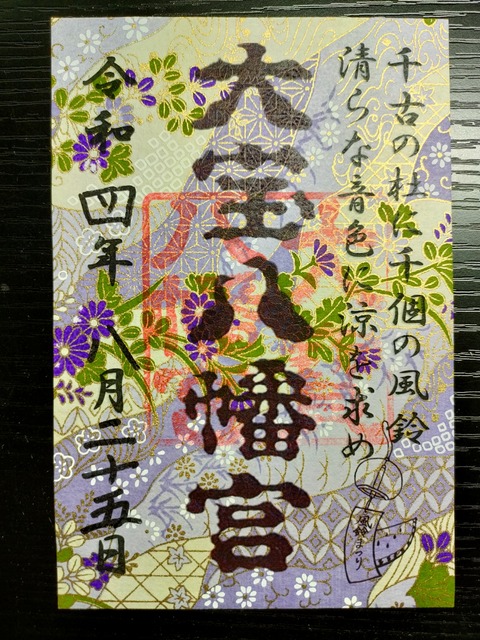 千古の杜に千個の風鈴
清らな音色に涼を求め
大宝八幡宮
令和四年八月二十五日
風鈴まつり